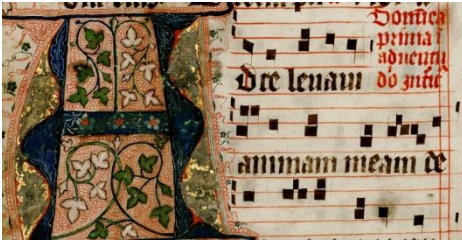 Dominica
prima i
adventu
do⁊ intit
A
d te levavi
animam meam de